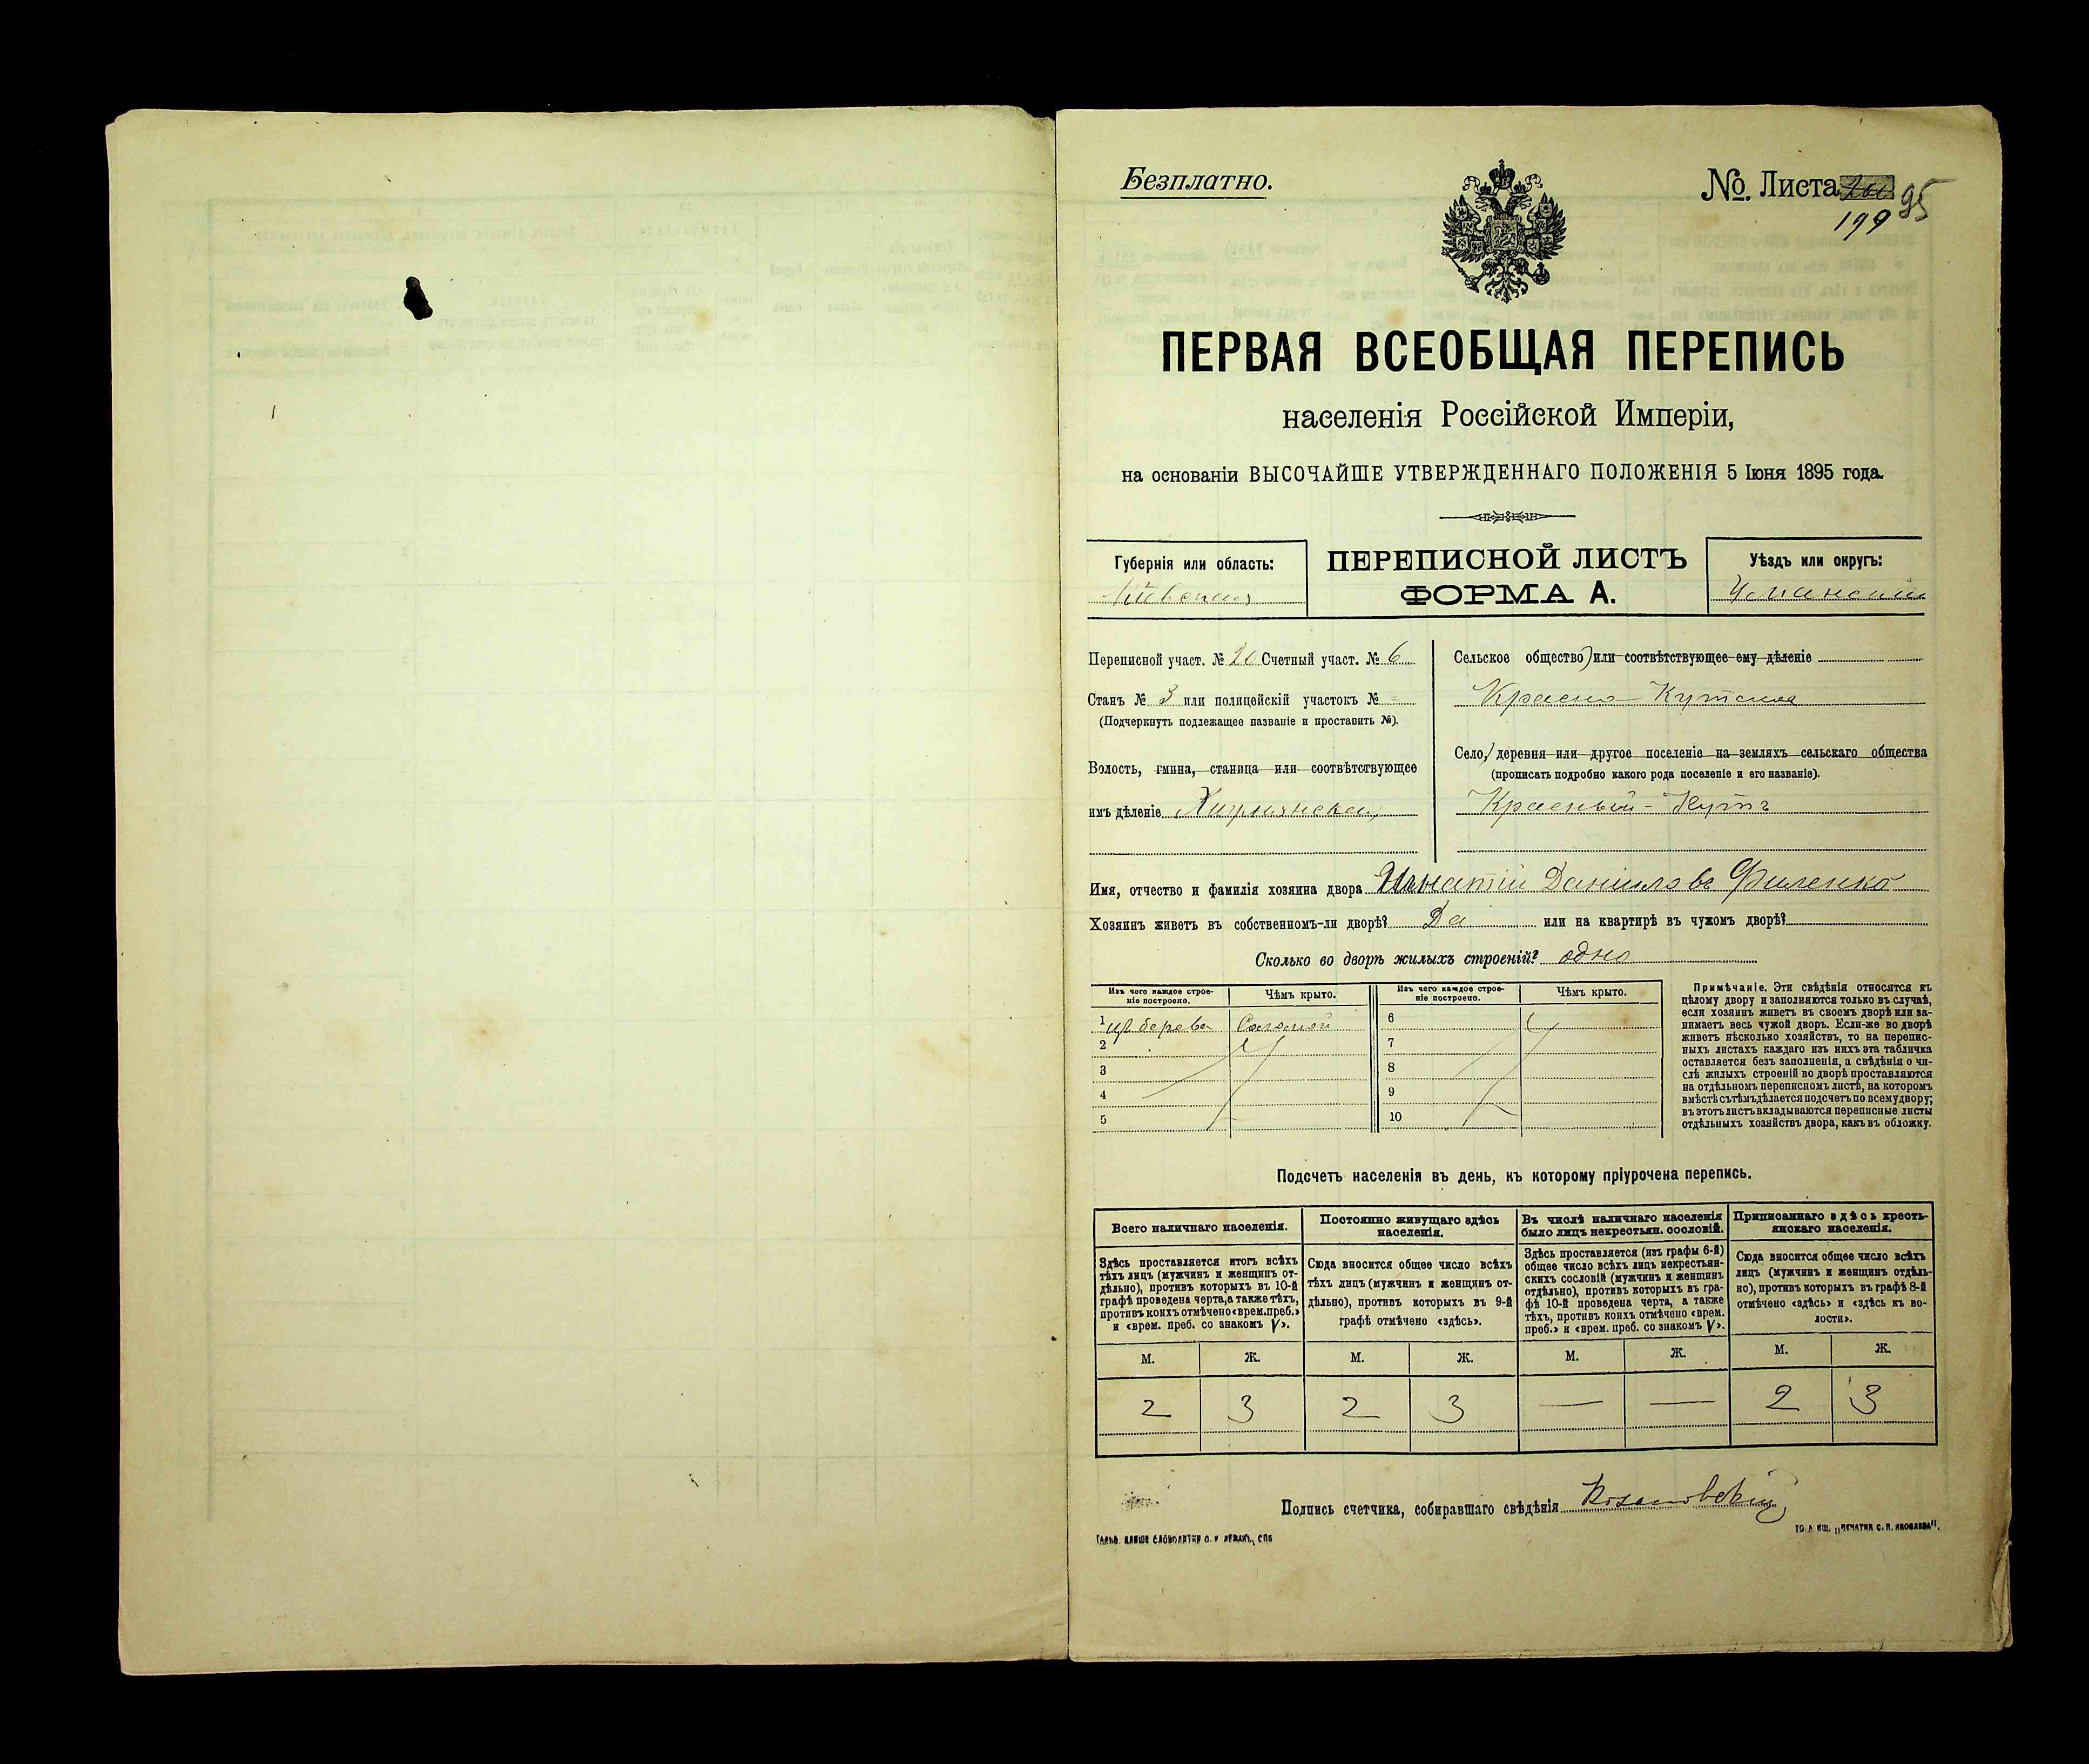 Безплатно.
№ Листа 199 95
ПЕРВАЯ ВСЕОБЩАЯ ПЕРЕПИСЬ
населенія Россійской Имперіи,
на основаніи ВЫСОЧАЙШЕ УТВЕРЖДЕННАГО ПОЛОЖЕНІЯ 5 Іюня 1895 года.
Губернія или область:
Кіевская
ПЕРЕПИСНОЙ ЛИСТЪ
ФОРМА А.
Уѣздъ или округъ:
Уманскій
Переписной участ. № 20 Счетный участ. № 6
Станъ № 3 или полицейскій участокъ № -
(Подчеркнуть подлежащее названіе и проставить №).
Волость, гмина, станица или соотвѣтствующее
имъ дѣленіе
Сельское общество) или соотвѣтствующее ему дѣленіе
Красно-Кутское
Село, деревня или другое поселеніе на земляхъ сельскаго общества
(прописать подробно какого рода поселеніе и его названіе).
Красный-Кутъ
Имя, отчество и фамилія хозяина двора Даниловъ Филенко
Хозяинъ живетъ въ собственномъ-ли дворѣ? Да или на квартирѣ въ чужомъ дворѣ?
Сколько во дворѣ жилыхъ строеній? одно
Изъ чего каждое строе-
ніе построено.
Чѣмъ крыто.
Изъ чего каждое строе-
ніе построено.
Чѣмъ крыто.
1 изъ дерева Соломой
2
3
4
5
6
7
8
9
10
Примѣчаніе. Эти свѣдѣнія относятся къ
цѣлому двору и заполняются только въ случаѣ,
если хозяинъ живетъ въ своемъ дворѣ или за-
нимаетъ весь чужой дворъ. Если-же во дворѣ
живетъ нѣсколько хозяйствъ, то на перепис-
ныхъ листахъ каждаго изъ нихъ эта табличка
оставляется безъ заполненія, а свѣдѣнія о чи-
слѣ жилыхъ строеній во дворѣ проставляются
на отдѣльномъ переписномъ листѣ, на которомъ
вмѣстѣ съ тѣмъ дѣлается подсчетъ по всему двору;
въ этотъ листъ вкладываются переписные листы
отдѣльныхъ хозяйствъ двора, какъ въ обложку.
Подсчетъ населенія въ день, къ которому пріурочена перепись.
Всего наличнаго населенія.
Постоянно живущаго здѣсь
населенія.
Въ числѣ наличнаго населенія
было лицъ некрестьян. сословій.
Приписаннаго здѣсь кресть-
янскаго населенія.
Здѣсь проставляется итогъ всѣхъ
тѣхъ лицъ (мужчинъ и женщинъ от-
дѣльно), противъ которыхъ въ 10-й
графѣ проведена черта, а также тѣхъ,
противъ коихъ отмѣчено «врем. преб.»
и «врем. преб. со знакомъ V».
Сюда вносится общее число всѣхъ
тѣхъ лицъ (мужчинъ и женщинъ от-
дѣльно), противъ которыхъ въ 9-й
графѣ отмѣчено «здѣсь».
Здѣсь проставляется (изъ графы 6-й)
общее число всѣхъ лицъ некрестьян-
скихъ сословій (мужчинъ и женщинъ
отдѣльно), противъ которыхъ въ гра-
фѣ 10-й проведена черта, а также
тѣхъ, противъ коихъ отмѣчено «врем.
преб.» и «врем. преб. со знакомъ V».
Сюда вносится общее число всѣхъ
лицъ (мужчинъ и женщинъ отдѣль-
но), противъ которыхъ въ графѣ 8-й
отмѣчено «здѣсь» и «здѣсь къ во-
лости».
М. Ж. М. Ж. М. Ж. М. Ж.
2 3 2 3 — — 2 3
Подпись счетчика, собиравшаго свѣдѣнія